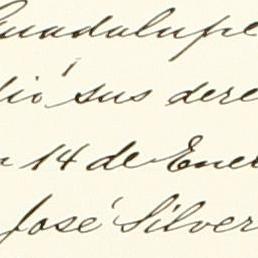 Guadalupe
dió sus dere
n 14 de Ener
José Silver